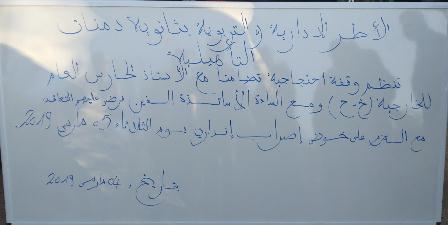 الأطر الادارية والتربوية بثانوية دمنات
التأهيلية
تنظم وقفة احتجاجية تضامنا مع الأستاذ الحارس العام
للخارجية (خ.ح) ومع السادة الأساتذة الذين فرض عليهم التعاقد
مع العزم على خوض إضراب إنذاري يوم الثلاثاء 05 مارس 2019.
بتاريخ: 04 مارس 2019